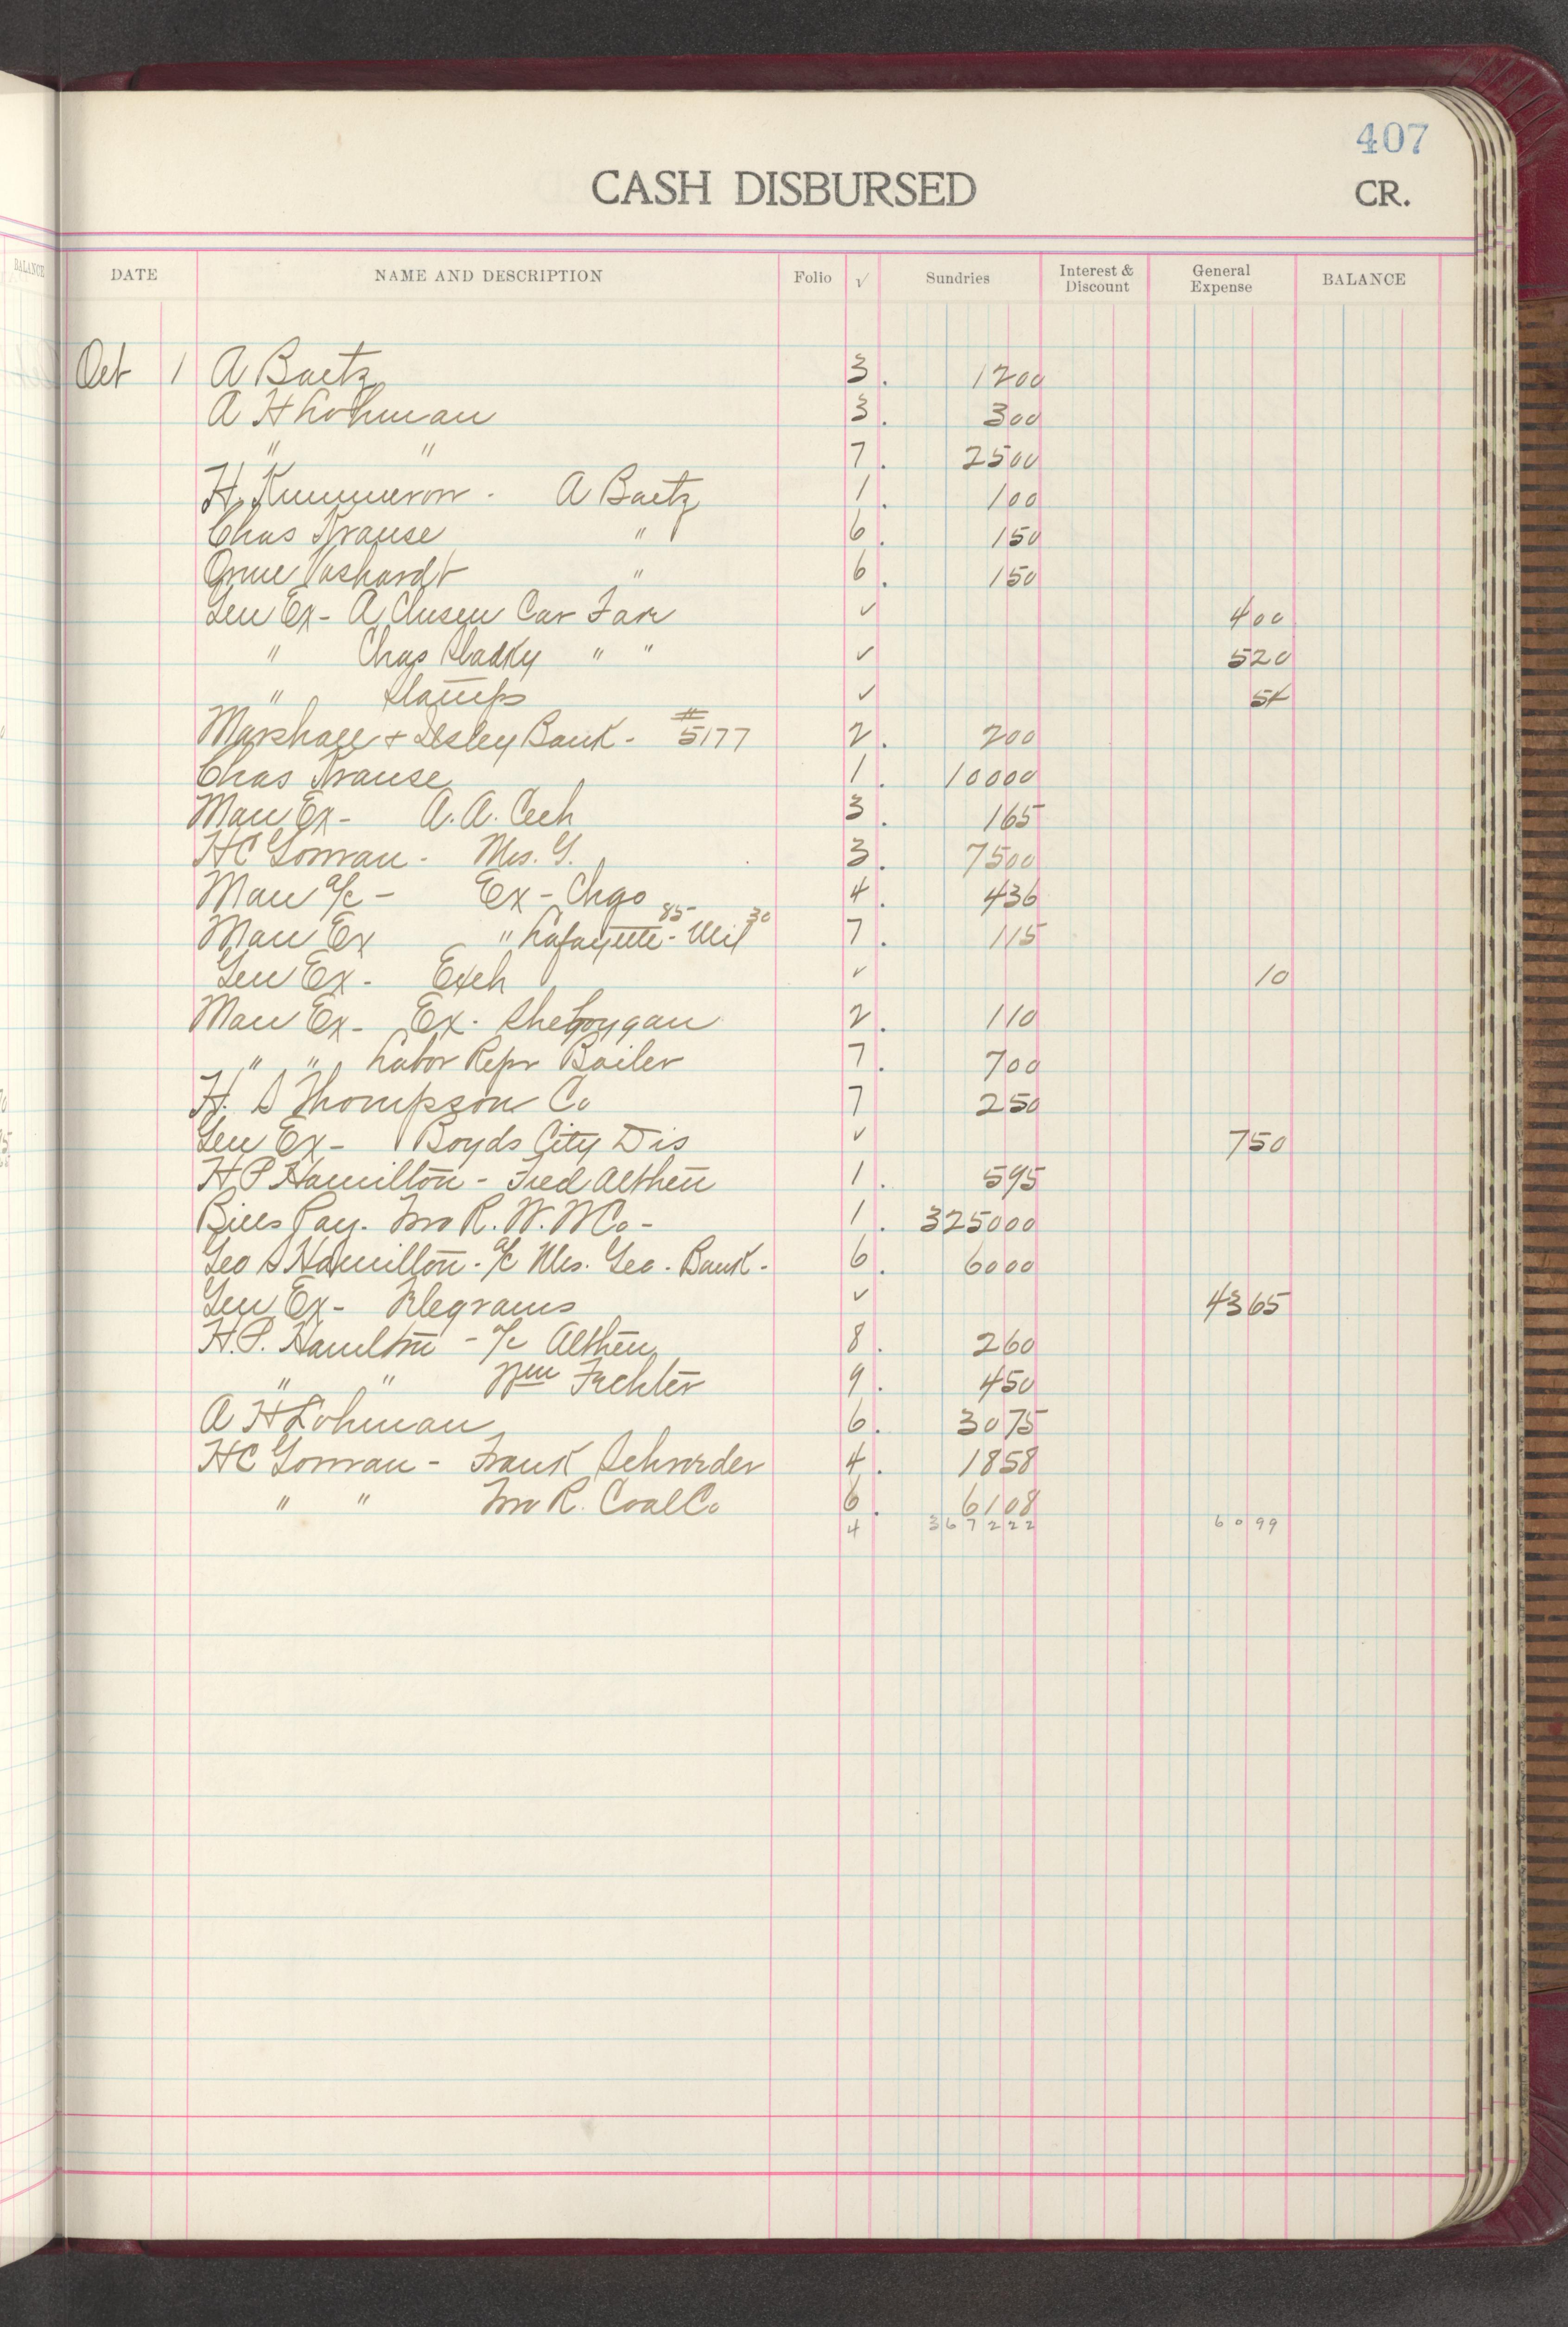 407
CASH DISBURSED CR.
BALANCE
DATE NAME AND DESCRIPTION Folio √ Sundries Interest & Discount General Expense BALANCE
Oct 1 A Baetz 3 . 1200
A H Lohman 3 . 300
" " 7 . 2500
H. - A Baetz 1 . 100
Chas Krause " 6 . 150
Vashardt " 6 . 150
Gen Ex - A Clusen Car Fare ✓ 400
" Chas Sladky " " ✓ 520
" Stamps ✓ 54
Marshall + Ilsley Bank - # 5177 2 . 200
Chas Krause 1 . 10000
Man Ex - A. A. Cech 3 . 165
HC Gowran - Mrs. G. 3 . 7500
Man a/c - Ex - Chgo 4 . 436
Man Ex " Lafayette 85 - Mil 30 7 . 115
Gen Ex - Exch ✓ 10
Man Ex - Ex - Sheboygan 2 . 110
" " Labor Repr Boiler 7 . 700
H. S Thompson Co 7 250
Gen Ex - Boyds City Dis ✓ 750
H P Hamilton - Fred Althen 1 . 595
Bills Pay. Two R. W. W Co - 1 . 325000
Geo S Hamilton - a/c Mrs. Geo. Bank - 6 . 6000
Gen Ex - Telegrams ✓ 4365
H. P. Hamilton - a/c Althen 8 . 260
" " Wm Fechter 9 . 450
A H Lohman 6 . 3075
HC Gowran - Frank Schroeder 4 . 1858
" " Two R. Coal Co 6 . 6108
4 367222 6099